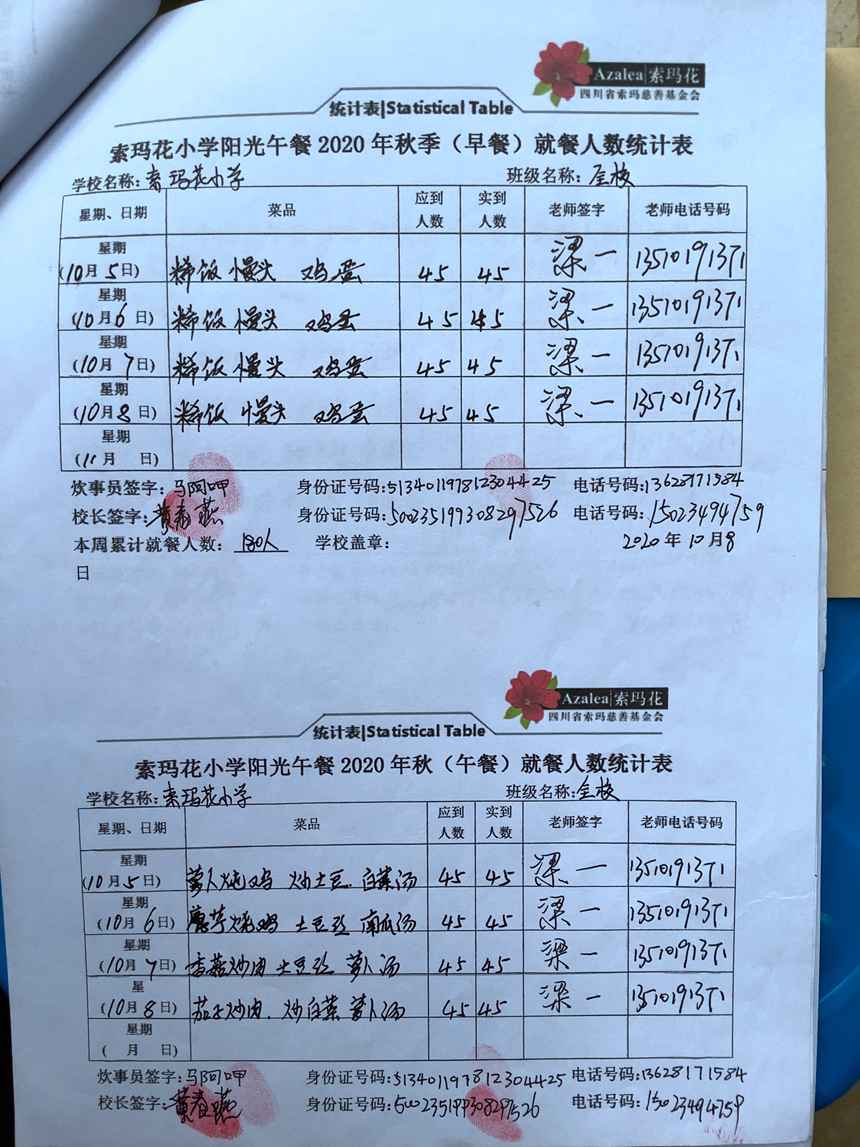 Azalea 索玛花
四川省索玛慈善基金会
统计表|Statistical Table
索玛花小学阳光午餐 2020 年秋季（早餐）就餐人数统计表
学校名称：索玛花小学 班级名称：全校
星期、日期 菜品 应到人数 实到人数 老师签字 老师电话号码
星期
(10月5日) 稀饭 馒头 鸡蛋 45 45 梁一 13510191371
星期
(10月6日) 稀饭 馒头 鸡蛋 45 45 梁一 13510191371
星期
(10月7日) 稀饭 馒头 鸡蛋 45 45 梁一 13510191371
星期
(10月8日) 稀饭 馒头 鸡蛋 45 45 梁一 13510191371
星期
(11月 日)
炊事员签字：马阿呷 身份证号码:513401197812304425 电话号码:13628171584
校长签字：黄春燕 身份证号码:500235199308297526 电话号码：15023494759
本周累计就餐人数：180人 学校盖章： 2020年10月8
日
Azalea 索玛花
四川省索玛慈善基金会
统计表|Statistical Table
索玛花小学阳光午餐 2020 年秋（午餐）就餐人数统计表
学校名称：索玛花小学 班级名称：全校
星期、日期 菜品 应到人数 实到人数 老师签字 老师电话号码
星期
(10月5日) 萝卜炖鸡 炒土豆 白菜汤 45 45 梁一 13510191371
星期
(10月6日) 魔芋烧鸡 土豆丝 南瓜汤 45 45 梁一 13510191371
星期
(10月7日) 香菇炒肉 土豆丝 萝卜汤 45 45 梁一 13510191371
星
(10月8日) 茄子炒肉. 炒白菜 萝卜汤 45 45 梁一 13510191371
星期
( 月 日)
炊事员签字：马阿呷 身份证号码:513401197812304425 电话号码:13628171584
校长签字：黄春燕 身份证号码:500235199308297526 电话号码：15023494759